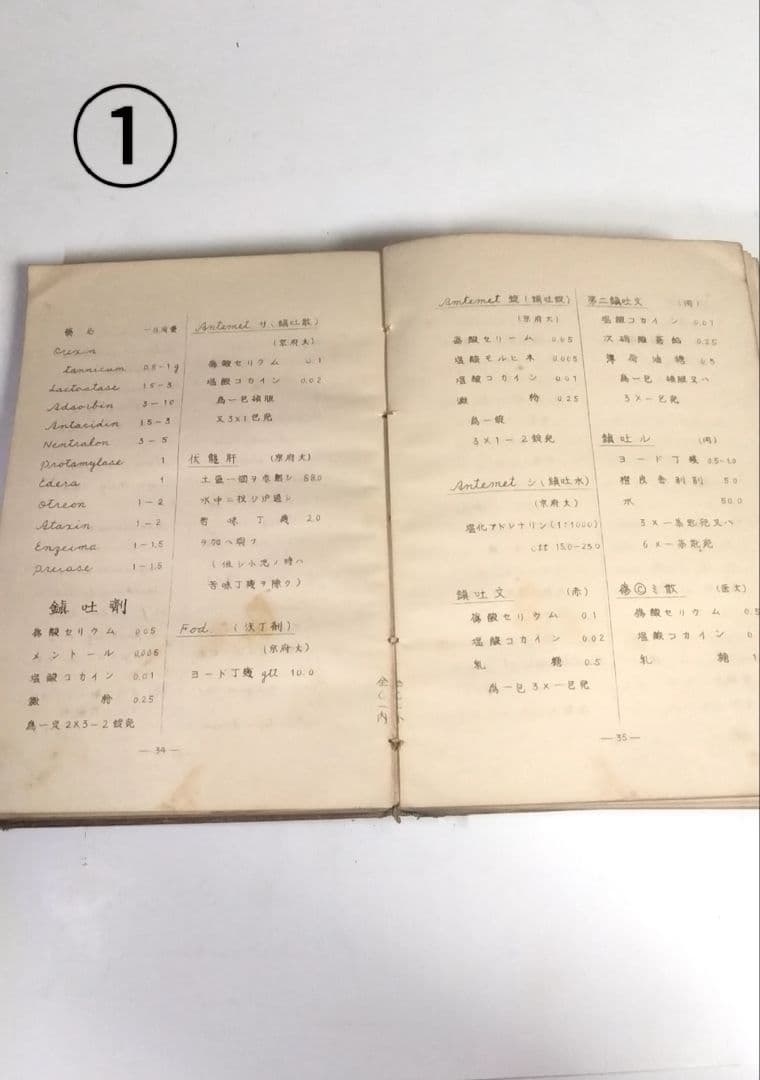 ①
一日用量
Orexin
tannicum 0.5-1g
Lactostase 1.5-3
Adsorbin 3-10
Antacidin 1.5-3
Neutralon 3-5
Protamylase 1
Edera 1
Otreon 1-2
Ataxin 1-2
Enzeima 1-1.5
Prerase 1-1.5
鎮吐剤
蓚酸セリウム 0.05
メントール 0.005
塩酸コカイン 0.01
澱粉 0.25
為一定2×3-2錠宛
Antemet サ(鎮吐散)
(京府大)
蓚酸セリウム 0.1
塩酸コカイン 0.02
為一包頓服
又3×1包宛
伏龍肝 (京府大)
土塩一個ヲ 88.0
水中ニ投シ沪過シ
苦味丁幾 2.0
ヲ加ヘ
(但シ小児ノ時ハ
苦味丁幾ヲ除ク)
Fod. (沃丁剤)
(京府大)
ヨード丁幾 gtt 10.0
—34—
Antemet 錠(鎮吐錠)
(京府大)
蓚酸セリーム 0.05
塩酸モルヒネ 0.005
塩酸コカイン 0.01
澱粉 0.25
為一錠
3×1-2錠宛
Antemet シ(鎮吐水)
(京府大)
塩化アドレナリン(1:1000)
gtt 15.0-25.0
鎮吐文 (赤)
蓚酸セリウム 0.1
塩酸コカイン 0.02
乳糖 0.5
為一包3×一包宛
第二鎮吐文 (同)
塩酸コカイン 0.01
次硝酸蒼鉛 0.25
薄荷油糖 0.5
為一包頓服又ハ
3×一包宛
鎮吐ル (同)
ヨード丁幾 0.5-1.0
橙皮舎利別 5.0
水 50.0
3×一茶匙宛又ハ
6×一茶匙宛
蓚Ⓒミ散
蓚酸セリウム 0.5
塩酸コカイン 0.
乳糖 1
—35—